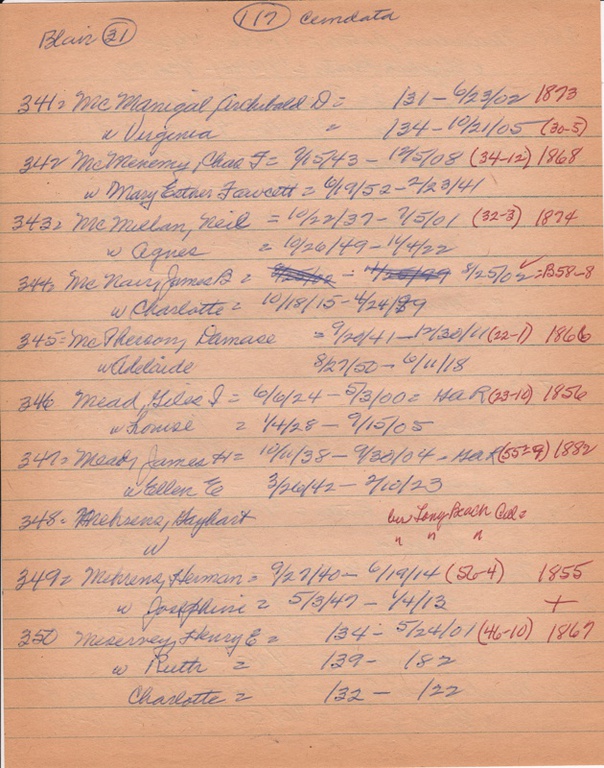 Blair 31 117 Cemdata
341= McManigal, Archibald D = 131 - 6/23/02 1873
w Virginia = 134 - 10/21/05 (30-5)
342 McMenemy, Chas F = 7/15/43 - 12/5/08 (34-12) 1868
w Mary Esther Fawcett = 6/19/52 - 2/23/41
343= McMillan, Neil = 10/22/37 - 7/5/01 (32-3) 1874
w Agnes = 10/26/49 - 11/4/22
344= McNair, James B = 8/25/02 = B58-8
w Charlotte = 10/18/15 - 4/24/99
345= McPherson, Damase = 9/20/41 - 12/30/11 (22-1) 1866
w Adelaide 8/27/50 - 6/11/18
346 Mead, Giles I = 6/6/24 - 5/3/00 = HaR (23-10) 1856
w Louise = 1/4/28 - 9/15/05
347= Mead, James H = 10/11/38 - 9/30/04 - HaR (55=9) 1882
w Ellen E 3/26/42 - 2/10/23
348= Mehrens, Gayhart bur Long Beach Cal=
w " " "
349= Mehrens, Herman = 9/27/40 - 6/19/14 (56-4) 1855
w Josephine = 5/3/47 - 1/4/13 +
350 Meservey, Henry E = 134 - 5/24/01 (46-10) 1867
w Ruth = 139 - 182
Charlotte = 132 - 122